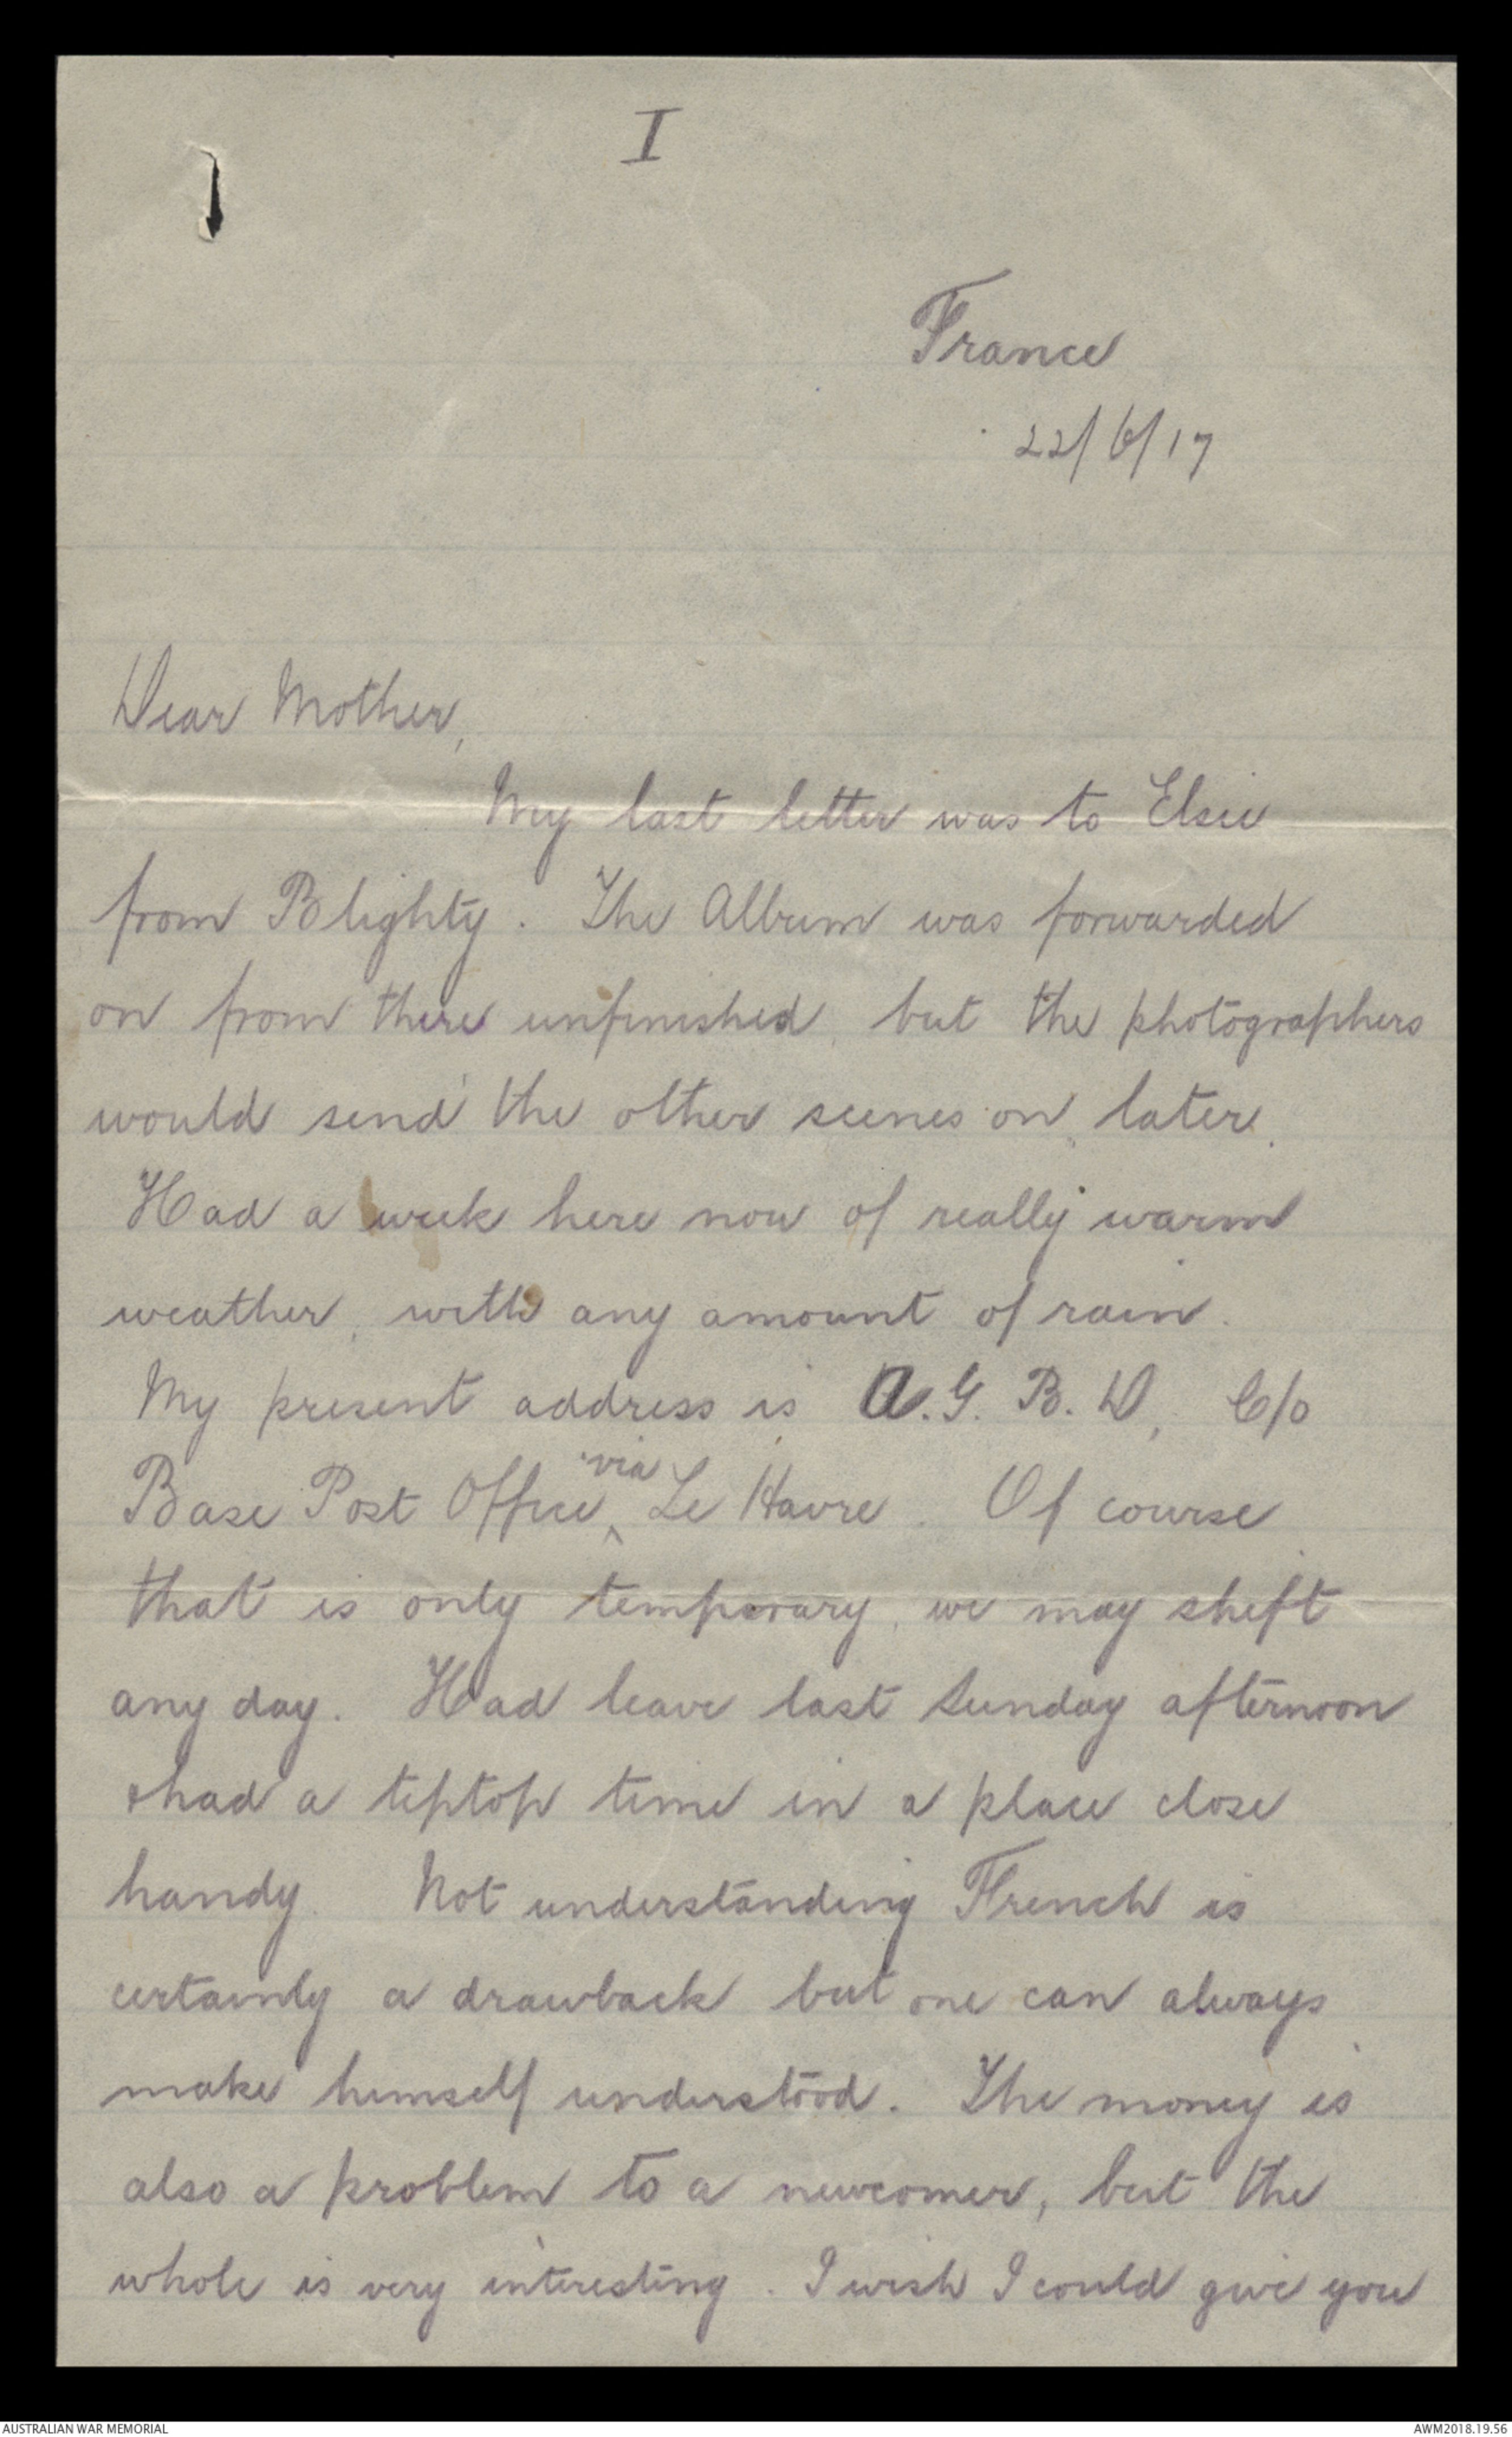 I
France
22/6/17
Dear Mother,
My last letter was to Elsie
from Blighty. The Album was forwarded
on from there unfinished, but the photographers
would send the other scenes on, later.
Had a week here now of really warm
weather, with any amount of rain.
My present address is A.G.B.D, C/o
Base Post Office, via Le Havre. Of course
that is only temporary, we may shift
any day. Had leave last Sunday afternoon
& had a tiptop time in a place close
handy. Not understanding French is
certainly a drawback but one can always
make himself understood. The money is
also a problem to a newcomer, but the
whole is very interesting. I wish I could give you
AUSTRALIAN WAR MEMORIAL
AWM2018.19.56